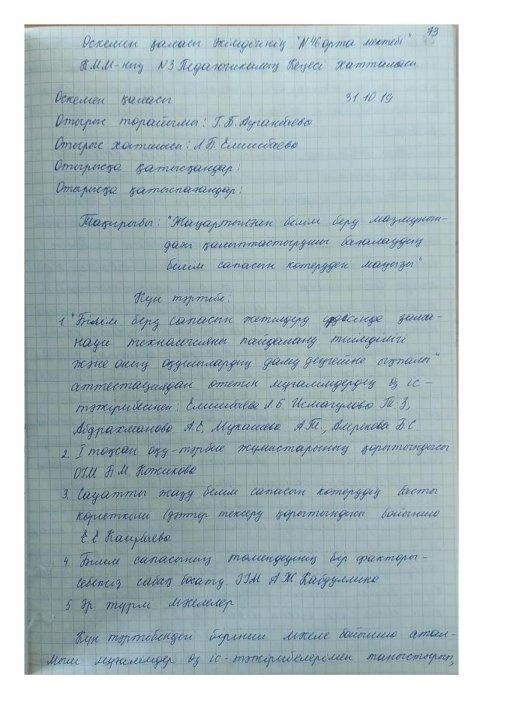 73
Өскемен қаласы әкімдігінің "N 46 орта мектебі"
КММ-нің N3 Педагогикалық Кеңесі хаттамасы
Өскемен қаласы 31.10.19
Отырыс төрайымы: Г.Б. Ауганбаева
Отырыс хатшысы: Л.Б. Елишбаева
Отырысқа қатысқандар:
Отырысқа қатыспағандар:
Тақырыбы: "Жаңартылған білім беру мазмұнын-
дағы қалыптастырушы бағалаудың
білім сапасын көтерудегі маңызы"
Күн тәртібі:
1. "Білім беру сапасын жетілдіру үрдесінде зама-
науи технологияны пайдалану тиімділігі
және оның оқушылардың даму деңгейіне ықпалы"
аттестациядан өтетін мұғалімдердің өз іс-
тәжірибесінен: Елишбаева Л.Б. Исмагулова Т.З,
Абдрахманова А.Е, Мукашева А.Т, Амренова Б.С
2. I тоқсан оқу-тәрбие жұмыстарының қорытындысы
ОІМ Б.М. Кожикова
3. Сауатты жазу білім сапасын көтерудің басты
көрсеткіші дәптер тексеру қорытындысы бойынша
Е.Е. Каирбаева
4. Білім сапасының төмендеуінің бір факторы-
себепсіз сабақ босату. А.Ж. Кабдулина
5. Әр түрлі мәселелер
Күн тәртібіндегі бірінші мәселе бойынша атал-
мыш мұғалімдер өз іс-тәжірибелерімен таныстырып,